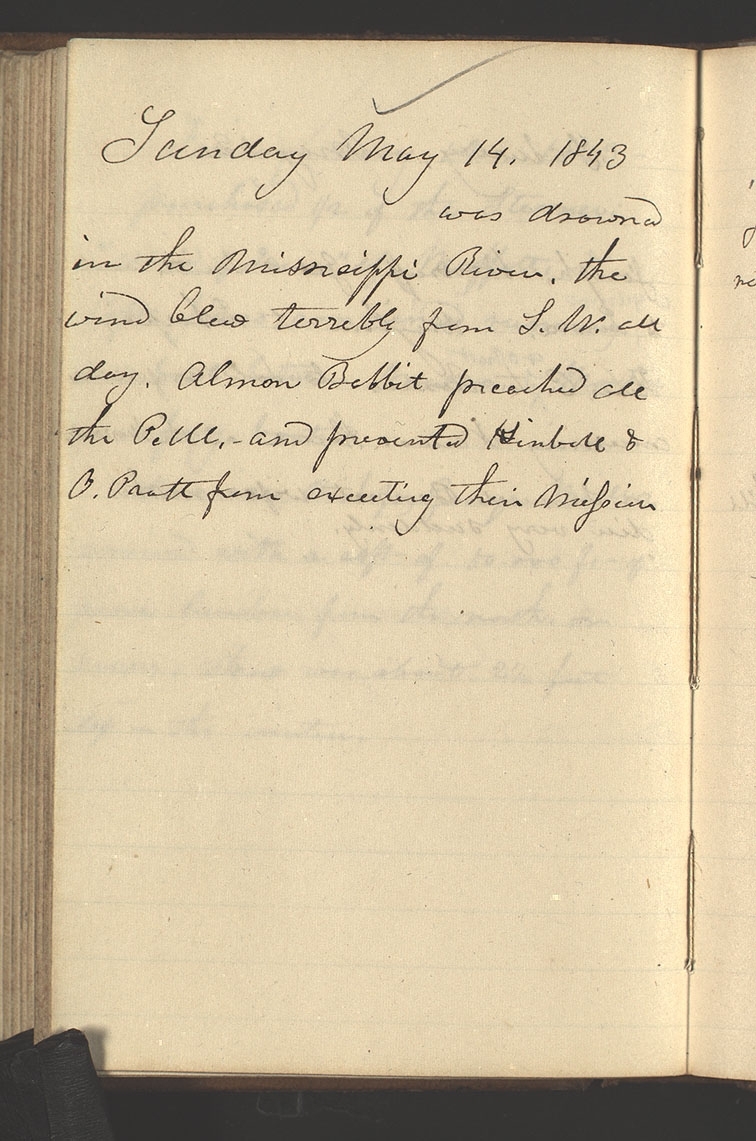 Sunday May 14. 1843
was drownd
in the Mississippi River. the
wind blew terribly from S. W. all
day. Almon Babbit preached all
the P.M.,- and prevented Kimball &
O. Pratt from executing their Mission